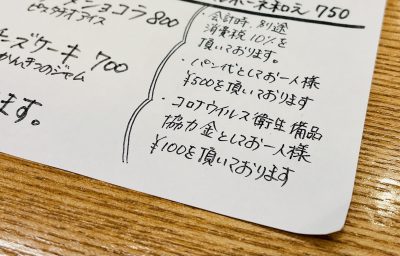 ショコラ 800
ピスタチオアイス
ーズケーキ 700
かんきつのジャム
ます。
ネ和え 750
・会計時、別途
消費税10%を
頂いております。
・パン代としてお一人様
¥500を頂いております
・コロナウイルス衛生備品
協力金としてお一人様
¥100を頂いております